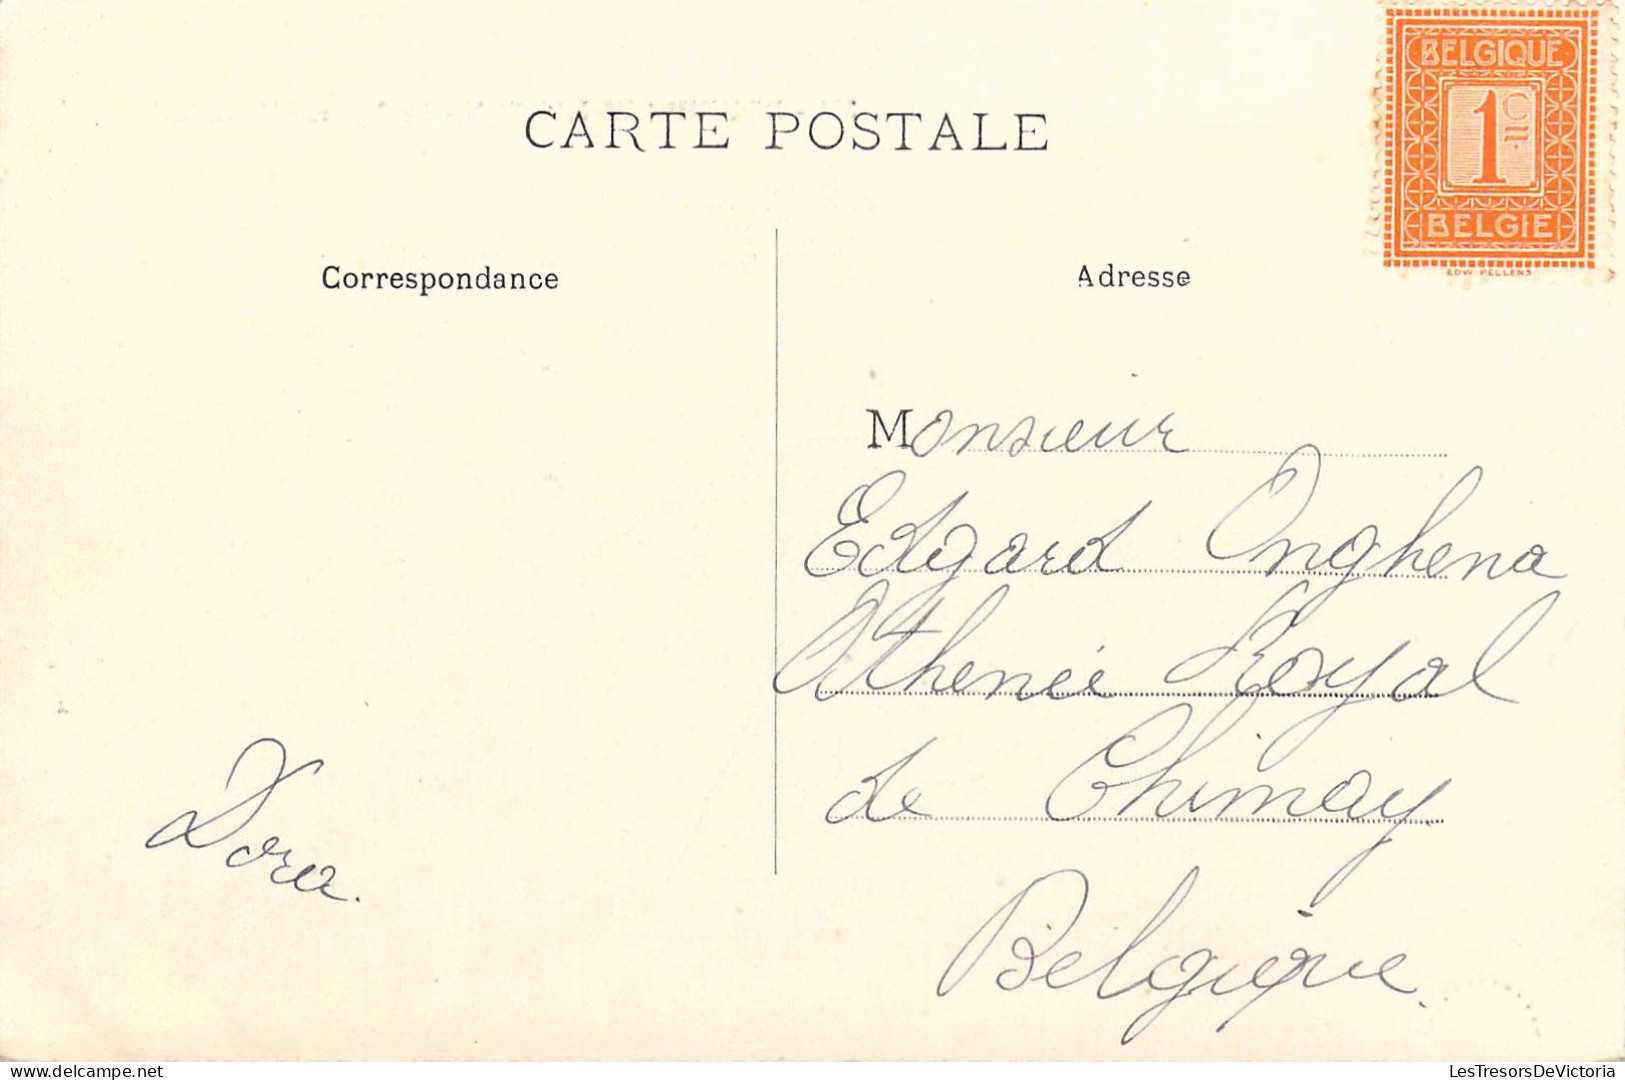 BELGIQUE
1 C
BELGIË
EDW PELLENS
CARTE POSTALE
Correspondance
Adresse
Monsieur
Edgard Onghena
Athenée Royal
de Chimay
Belgique.
Dora.
delcampe.net
LesTresorsDeVictoria